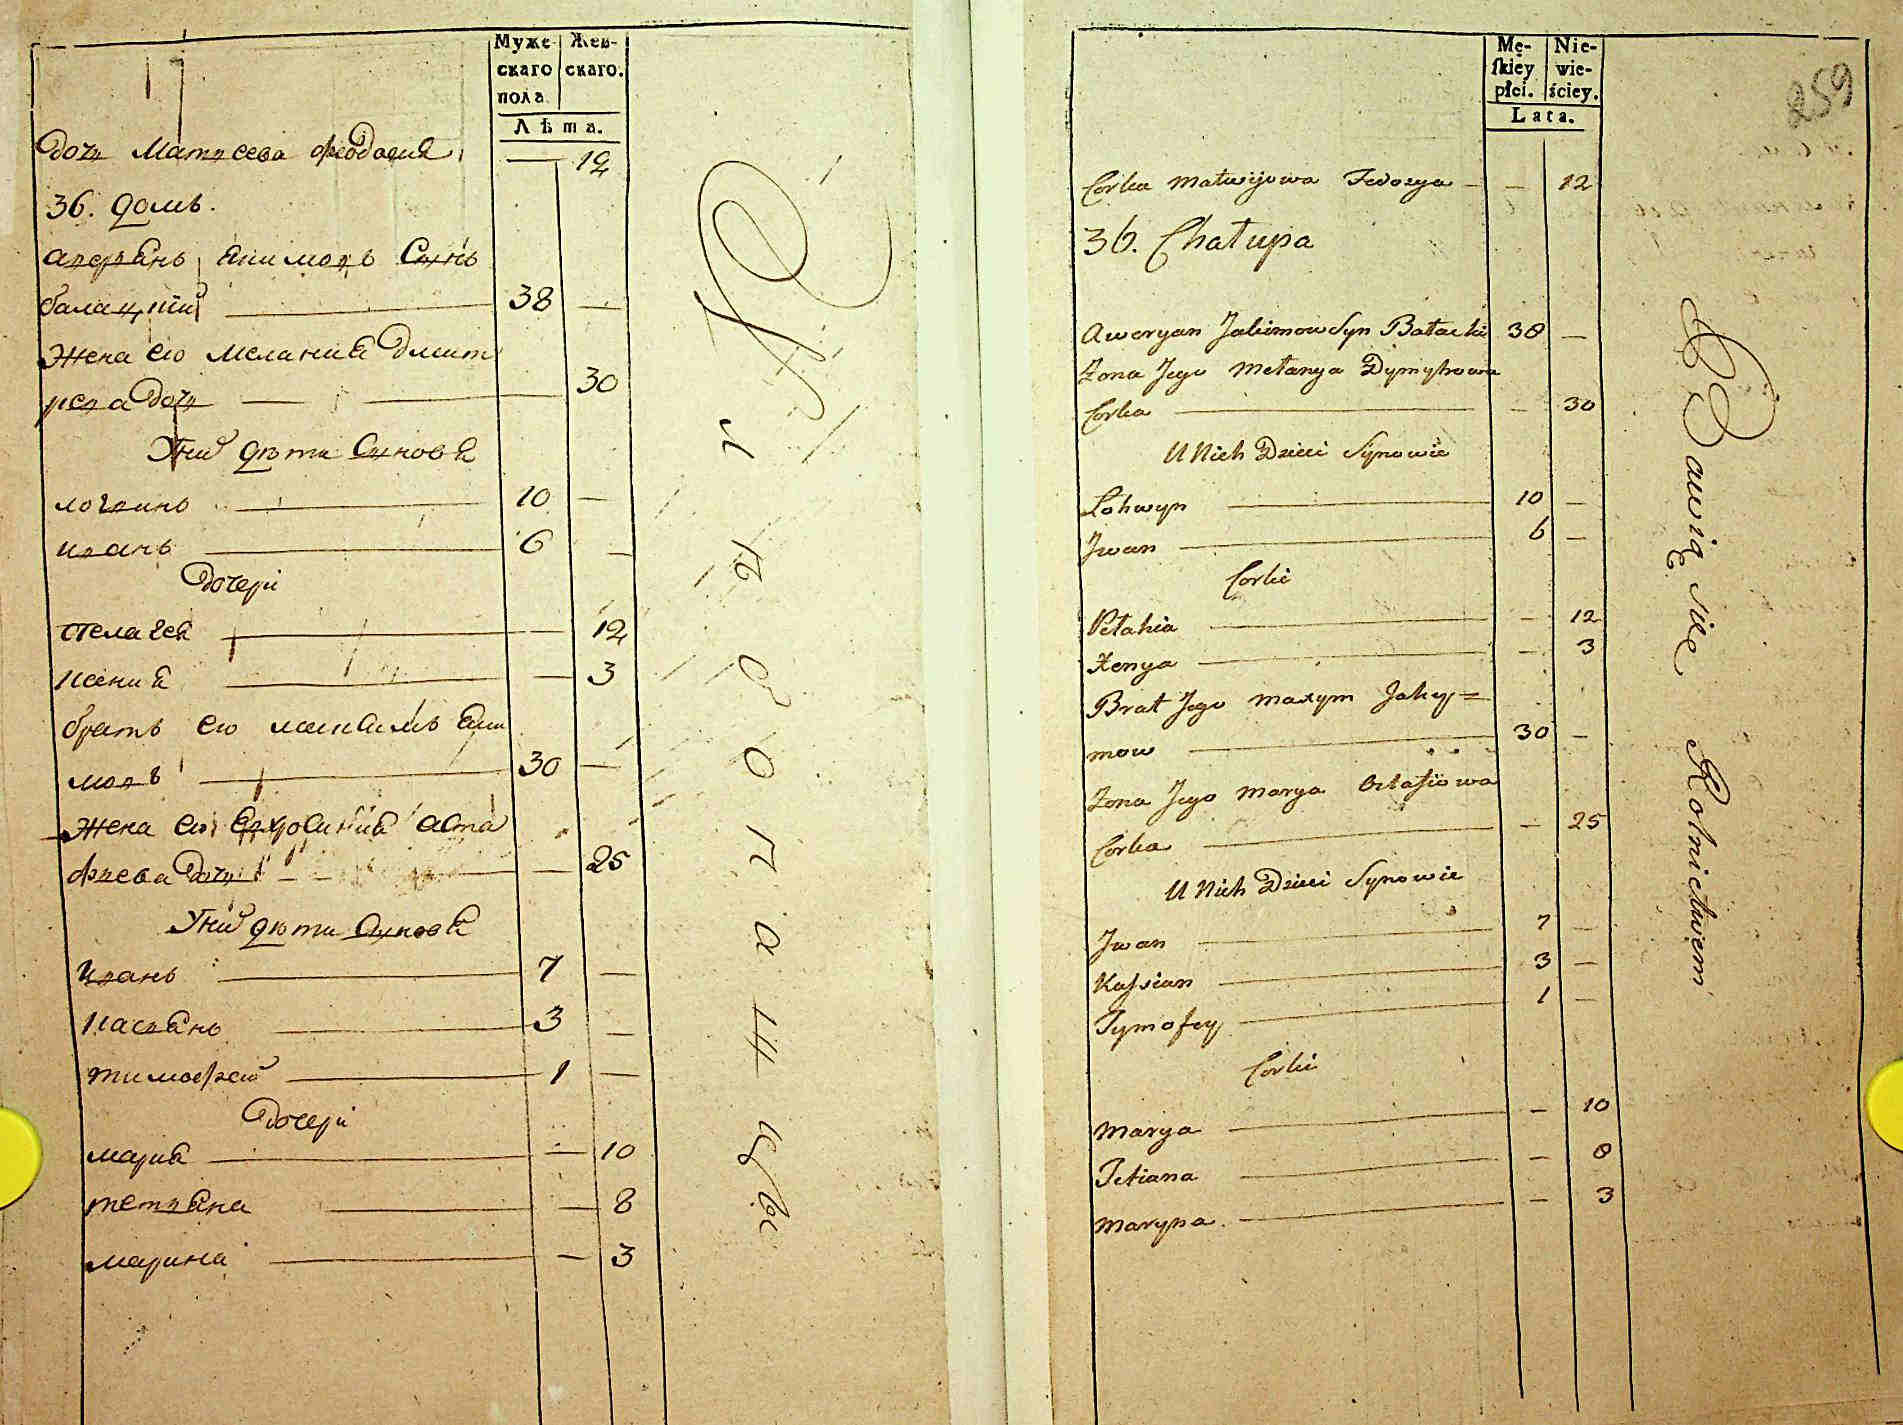 Муже- Жен-
скаго скаго.
пола
Лѣта.
дочь Матвеева феодосия — 12
36. домъ.
аверянъ акимовъ Сынъ
балацкий — 38 —
жена ево мелания дмит
рева дочь — 30
У них дѣти Сыновя
логвинъ — 10 —
иванъ — 6 —
Дочери
пелагея — 12
ксения — 3
братъ ево максимъ аки
мовъ — 30 —
жена ево ефросиния аста
фиева дочь — 25
У них дѣти Сыновя
иванъ — 7 —
касиянъ — 3 —
тимофей — 1 —
Дочери
мария — 10
тетиана — 8
марина — 3
Хлѣбопашцы
Mę- Nie-
skiey wie-
płci. ściey.
Lata.
259
Corka Matwijowa Fedosya — — 12
36. Chałupa
Aweryan Jakimow Syn Bałacki 38 —
Żona Jego Mełanya Dymytrowa
Corka — — 30
U Nich Dzieci Synowie
Lohwyn — 10 —
Jwan — 6 —
Corki
Pełahia — — 12
Xenya — — 3
Brat Jego Maxym Jaky=
mow — 30 —
Żona Jego Marya Ostafiowa
Corka — — 25
U Nich Dzieci Synowie
Jwan — 7 —
Kassian — 3 —
Tymofey — 1 —
Corki
Marya — — 10
Tetiana — — 8
Maryna — — 3
Bawią się Rolnictwem